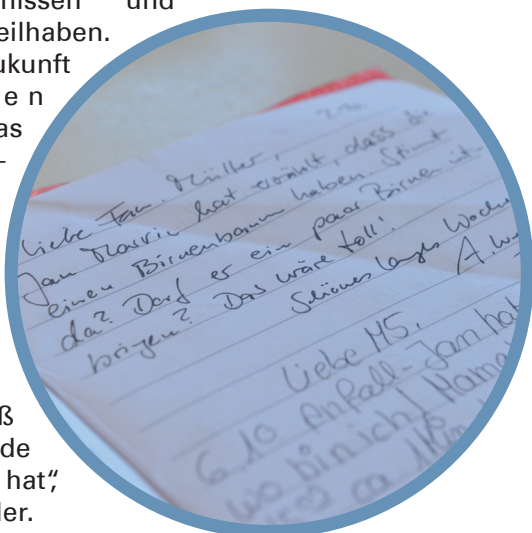 nissen und
eilhaben.
ukunft
e n
as
-
ß
de
hat“,
ler.
Liebe Fam. Müller,
Jan Marvin hat erzählt, dass Sie
einen Birnenbaum haben. Stimmt
da? Darf er ein paar Birnen mit-
bringen? Das wäre toll!
Schönes langes Woche
A.W
Liebe MS,
6.10 Anfall - Jan hat
wo bin ich! Mama
ca